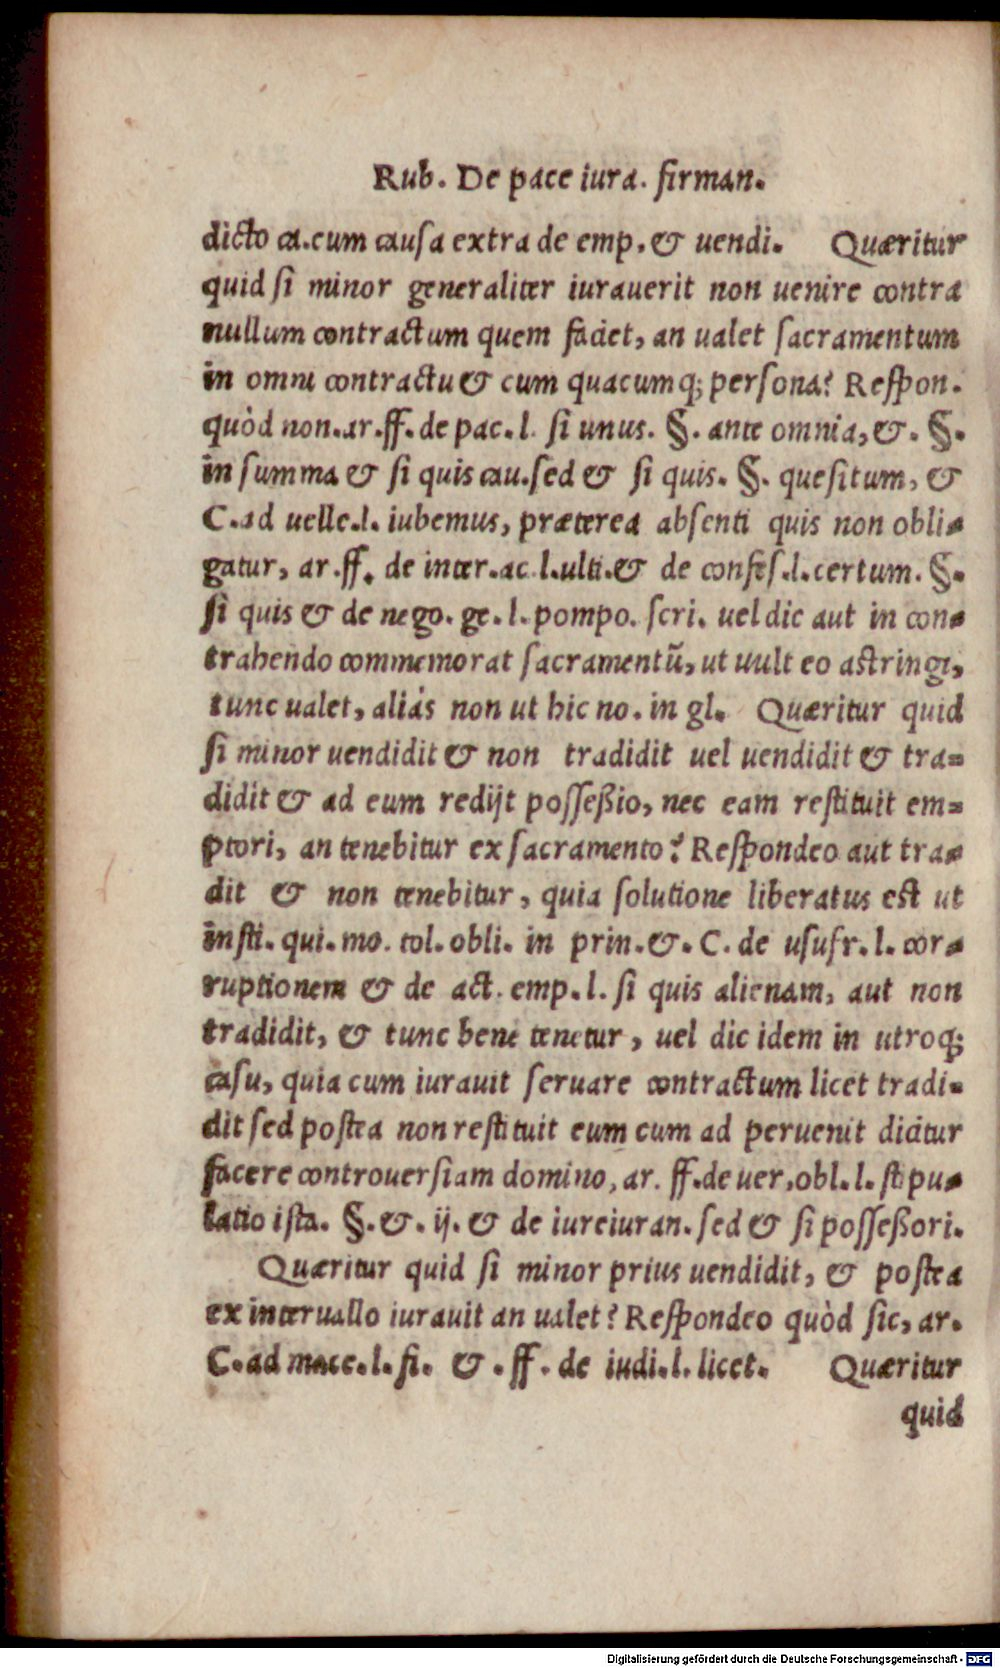 Rub. De pace iura. firman.
dicto ca.cum causa extra de emp. & uendi. Quæritur
quid si minor generaliter iurauerit non uenire contra
nullum contractum quem faciet, an ualet sacramentum
in omni contractu & cum quacumq; persona? Respon.
quòd non.ar.ff. de pac.l. si unus. §. ante omnia, &. §.
in summa & si quis cau.sed & si quis. §. quesitum, &
C.ad uelle.l. iubemus, præterea absenti quis non obli-
gatur, ar.ff. de inter.ac.l.ulti.& de confes.l.certum. §.
si quis & de nego. ge.l.pompo. scri. uel dic aut in con-
trahendo commemorat sacramentũ, ut uult eo astringi,
tunc ualet, aliás non ut hic no. in gl. Quæritur quid
si minor uendidit & non tradidit uel uendidit & tra-
didit & ad eum redijt posseßio, nec eam restituit em-
ptori, an tenebitur ex sacramento? Respondeo aut tra-
dit & non tenebitur, quia solutione liberatus est ut
insti. qui.mo. tol.obli. in prin.&. C. de usufr.l. cor-
ruptionem & de act. emp.l. si quis alienam, aut non
tradidit, & tunc bene tenetur, uel dic idem in utroq;
casu, quia cum iurauit seruare contractum licet tradi-
dit sed postea non restituit eum cum ad peruenit dicitur
facere controuersiam domino, ar. ff.de uer.obl.l. stipu-
latio ista. §.&. ij. & de iureiuran.sed & si posseßori.
Quæritur quid si minor prius uendidit, & postea
ex interuallo iurauit an ualet? Respondeo quòd sic, ar.
C.ad mace.l.fi. & .ff. de iudi.l.licet. Quæritur
quid
Digitalisierung gefördert durch die Deutsche Forschungsgemeinschaft - DFG